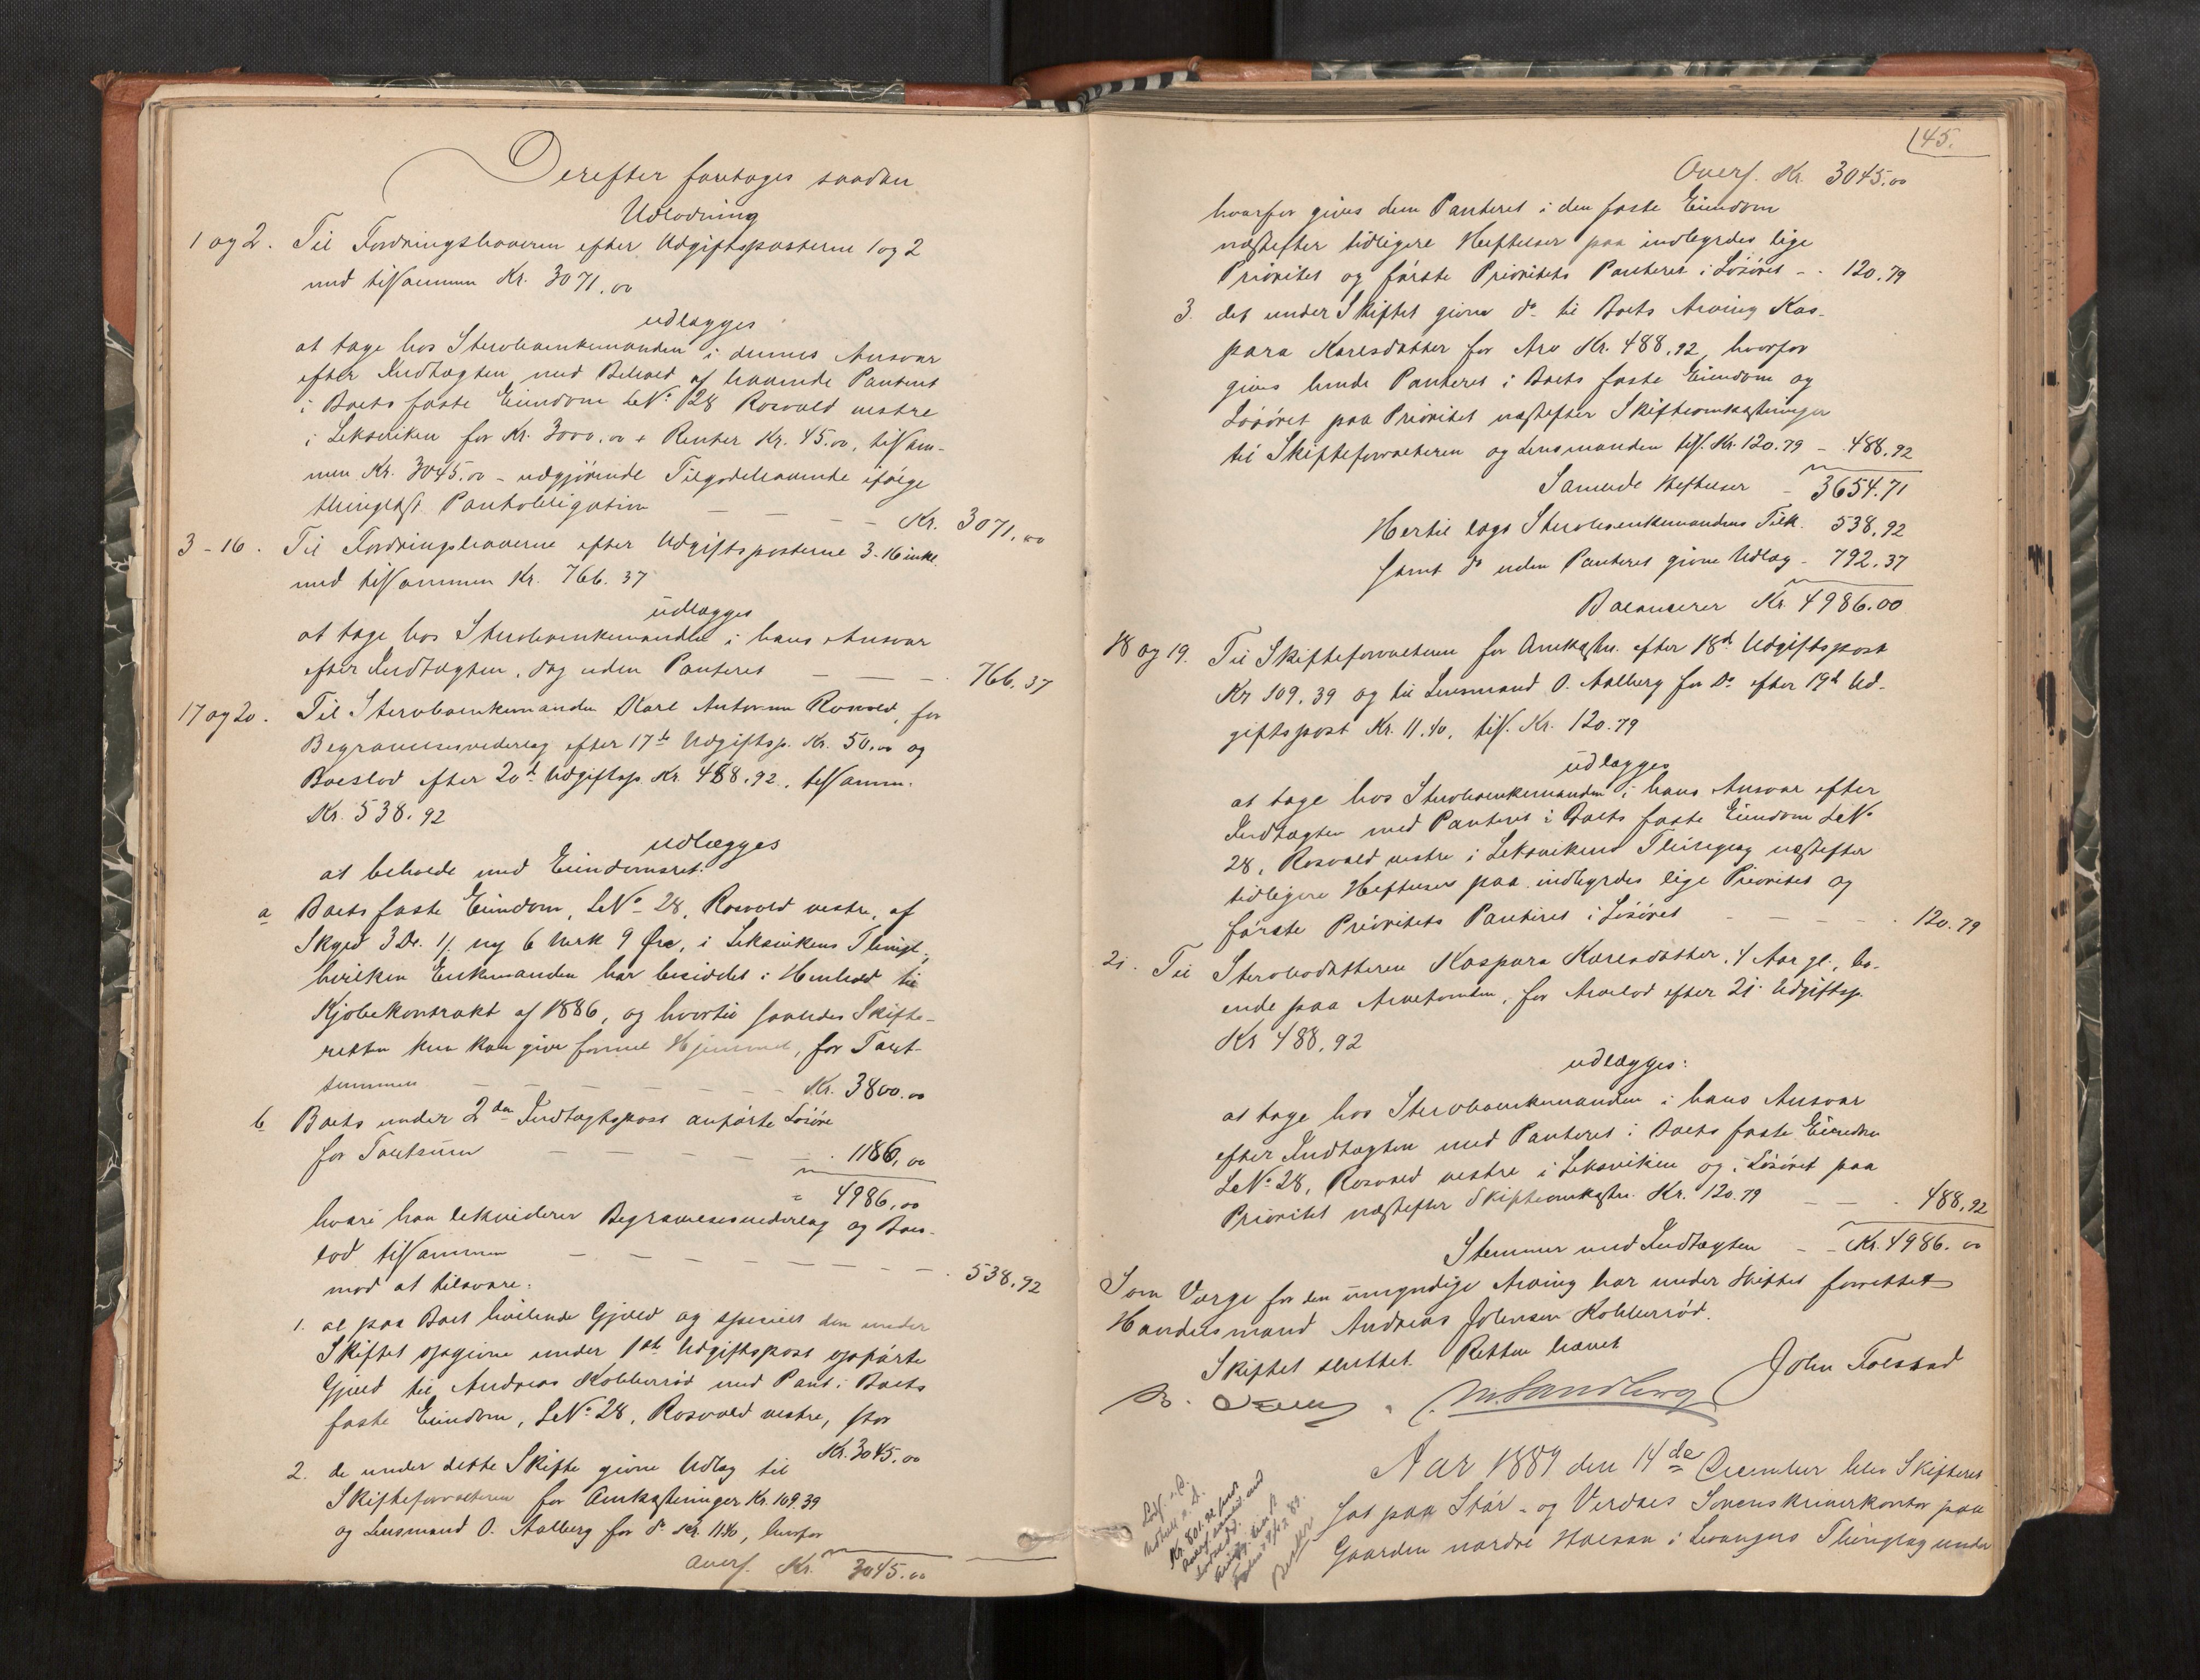 Derefter foretages saadan
Udlodning
1 og 2. Til Fordringshaverne efter Udgiftsposterne 1 og 2
med tilsammen Kr. 3071,00
udlægges
at tage hos Sterboenkemanden i dennes Ansvar
efter Indtægten med Behold af havende Panteret
i Boets faste Eiendom LNo. 28 Rosvold vestre
i Leksviken for Kr. 3000,00 + Renter Kr. 45.00, tilsam-
men Kr. 3045.00 - udgjörende Tilgodehavende ifölge
thinglæst Pantobligation — — — — Kr. 3071,00
3-16. Til Fordringshaverne efter Udgiftsposterne 3-16 inkl.
med tilsammen Kr. 766.37
udlægges
at tage hos Sterboenkemanden i hans Ansvar
efter Indtægten, dog uden Panteret — — — 766,37
17 og 20. Til Sterboenkemanden Karl Rosvold, for
Begravelsesvederlag efter 17de Udgiftsp. Kr. 50,00 og
Boeslod efter 20de Udgiftsp. Kr. 488.92, tilsamm.
Kr. 538,92
udlægges
at beholde med Eiendomsret:
a Boets faste Eiendom, LNo. 28, Rosvold vestre, af
Skyld 3 Dr. ny 6 Mrk 9 Øre, i Leksvikens Thingl.,
hvilken Enkemanden har besiddet i Henhold til
Kjöbekontrakt af 1886, og hvortil saaledes Skifte-
retten kun kan give formel Hjemmel, for Taxt-
summen — — — — — — Kr. 3800.00
b Boets under 2den Indtægtspost anförte Lösöre
for Taxtsum — — — — — - 1186,00
" 4986,00
hvori han likviderer Begravelsesvederlag og Boes-
lod tilsammen — — — — — — — - 538,92
mod at tilsvare:
1. al paa Boet hvilende Gjæld og specielt den under
Skiftet opgivne under 1ste Udgiftspost opförte
Gjæld til Andreas Kobberröd med Pant i Boets
faste Eiendom, LNo. 28, Rosvold vestre, stor
Kr. 3045,00
2. de under dette Skifte givne Udlæg til
Skifteforvalteren for Omkostninger Kr. 109.39
og Lensmand O. Aalberg for do. Kr. 11.40, hvorfor
Overf. Kr. 3045.00
145.
Overf. Kr. 3045.00
hvorfor gives dem Panteret i den faste Eiendom
næstefter tidligere Heftelser paa indbyrdes lige
Prioritet og förste Prioritets Panteret i Lösöret - - 120.79
3. det under Skiftet givne do. til Boets Arving Kas-
para Karlsdatter for Arv Kr. 488.92, hvorfor
gives hende Panteret i Boets faste Eiendom og
Lösöret paa Prioritet næstefter Skifteomkostninger
til Skifteforvalteren og Lensmanden tils. Kr. 120.79 - - 488,92
Samlede Heftelser - 3654.71
Hertil lagt Sterboenkemandens Tilk. 538,92
samt do. uden Panteret givne Udlæg - 792.37
Balancerer Kr. 4986.00
18 og 19. Til Skifteforvalteren for Omkostn. efter 18de Udgiftspost
Kr 109.39 og til Lensmand O. Aalberg for Do. efter 19de Ud-
giftspost Kr. 11.40, tils. Kr. 120.79
udlægges
at tage hos Sterboenkemanden i hans Ansvar efter
Indtægten med Panteret i Boets faste Eiendom LNo.
28, Rosvold vestre i Leksvikens Thinglag næstefter
tidligere Heftelser paa indbyrdes lige Prioritet og
förste Prioritets Panteret i Lösöret — — — — - 120.79
21. Til Sterbodatteren Kaspara Karlsdatter, 4 Aar gl., bo-
ende paa Arvetomten, for Arvelod efter 21. Udgiftsp.
Kr 488,92
udlægges:
at tage hos Sterboenkemanden i hans Ansvar
efter Indtægten med Panteret i Boets faste Eiendom
LNo. 28, Rosvold vestre i Leksviken og i Lösöret paa
Prioritet næstefter Skifteomkostn. Kr. 120.79 — — - 488,92
Stemmer med Indtægten - - Kr. 4986.00
Som Værge for den umyndige Arving har under Skiftet forrettet
Handelsmand Andreas Johnsen Kobberröd.
Skiftet sluttet. Retten hævet
M. Sandberg John Folstad
Aar 1889 den 14de December blev Skifteret
sat paa Stör- og Værdals Sorenskriverkontor paa
Gaarden nordre Halsan i Levangers Thinglag under